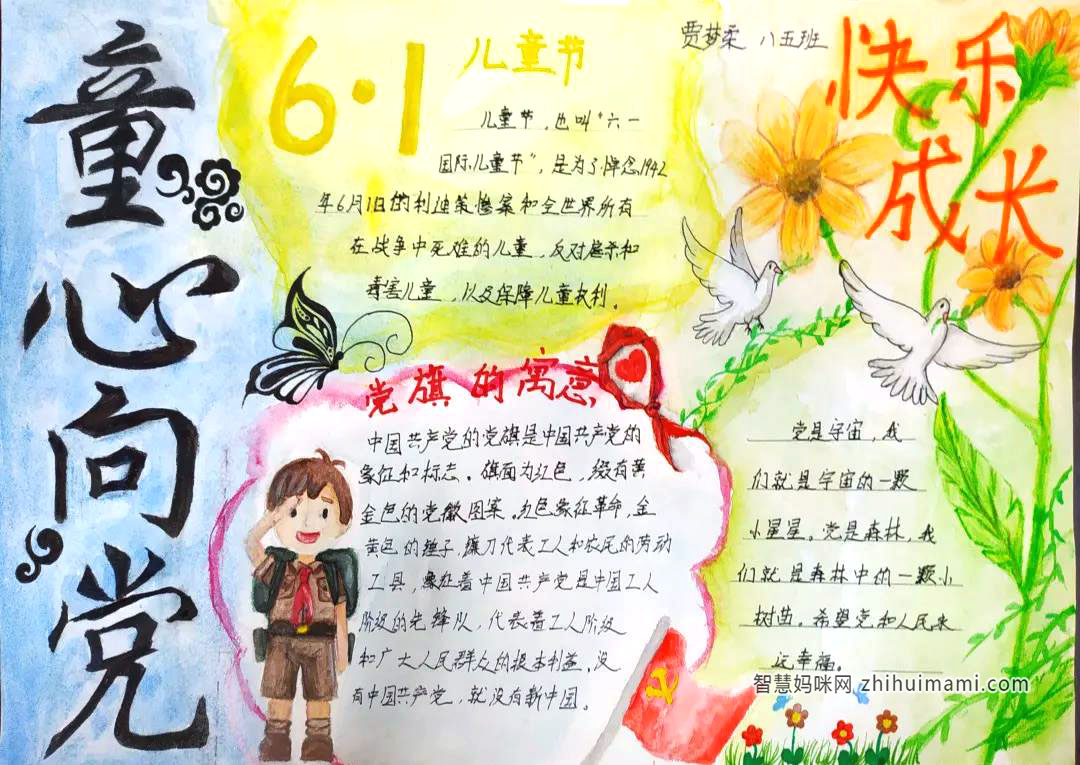 童心向党
6·1 儿童节
贾梦柔 八五班
快乐
成长
儿童节，也叫“六一
国际儿童节”，是为了悼念1942
年6月1日的利迪策惨案和全世界所有
在战争中死难的儿童，反对虐杀和
毒害儿童，以及保障儿童权利。
党旗的寓意
中国共产党的党旗是中国共产党的
象征和标志。旗面为红色，缀有黄
金色的党徽图案。为色象征革命，金
黄色的锤子，镰刀代表工人和农民的劳动
工具，象征着中国共产党是中国工人
阶级的先锋队，代表着工人阶级
和广大人民群众的根本利益。没
有中国共产党，就没有新中国。
党是宇宙，我
们就是宇宙的一颗
小星星。党是森林，我
们就是森林中的一颗小
树苗。希望党和人民永
远幸福。
智慧妈咪网 zhihuimami.com